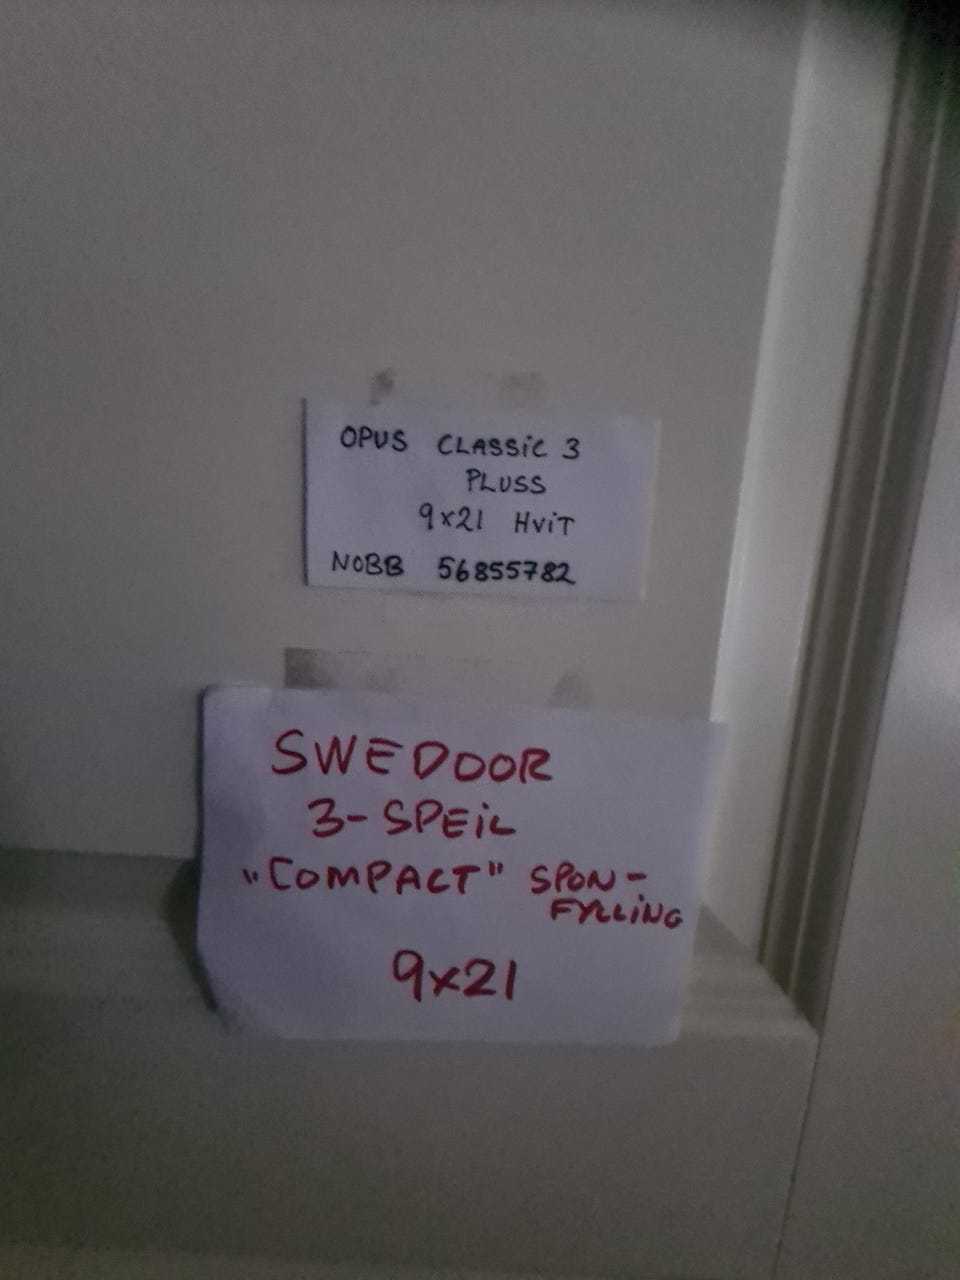 OPUS CLASSiC 3
PLUSS
9x21 HViT
NOBB 56855782
SWEDOOR
3-SPEiL
"COMPACT" SPON-
FYLLiNG
9x21